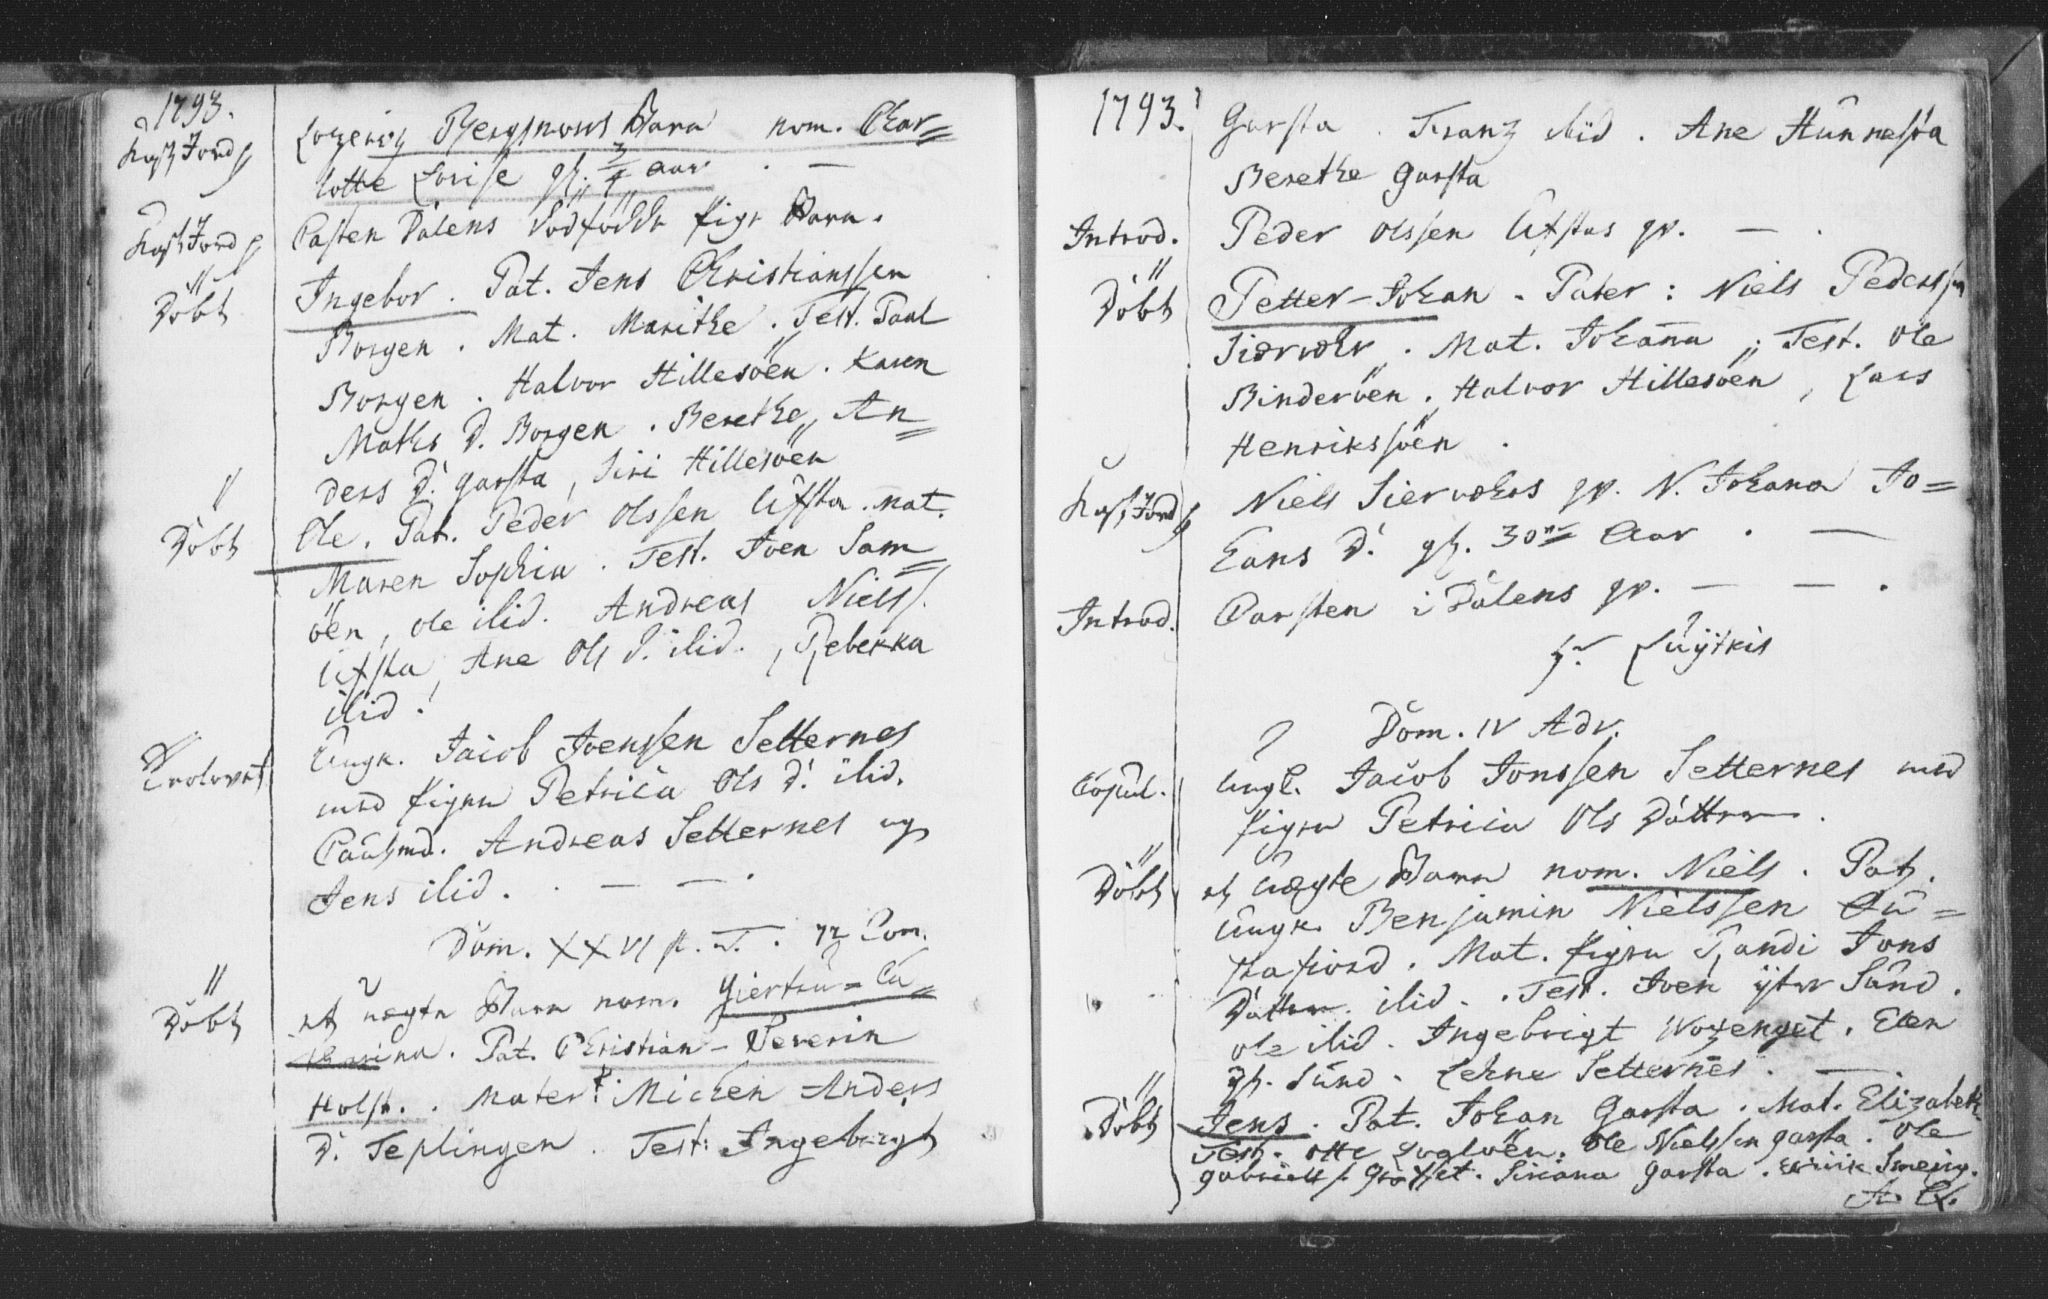 1793.
Kast Jord paa Lorentz Bergmans Barn nom. Char=
lotte Lovise gl. 3/4 Aar . —
Kast Jord paa Casten Dalens dödfödde pige Barn.
Döbt Ingebor. Pat. Jens Christianssen
Borgen. Mat. Marithe. Test. Paul
Borgen. Halvor Hillesöen. Karen
Maths D. Borgen. Berethe An=
ders D: Garsta, Siri Hillesöen
Döbt Ole. Pat. Peder Olssen Ufsta. Mat.
Maren Sophia. Test. Iven Sam=
öen, Ole ibid. Andreas Niels S.
Ufsta, Ane Ols D. ibid., Rebekka
ibid.
Trolovet Ungk. Jacob Joenssen Setternes
med Pigen Petricia Ols D: ibid.
Cautmd. Andreas Setternes og
Jens ibid. . — — .
Dom. XXVI p. T. 72 Com.
Döbt et uægte Barn nom. Giertru=Ca=
tharina. Pat. Christian-Severin
Holst. Mater: Michen Anders
D: Teplingen. Test: Ingebrigt
1793.
Garsta. Franz ibid. Ane Hunnesöa
Berethe Garsta
Introd. Peder Olssen Ufstas qv. — .
Döbt Petter-Johan. Pater: Niels Pederssen
Siervoehr. Mat. Johanna; Test. Ole
Binderöen. Halvor Hillesöen, Lars
Henrikssöen.
Kast Jord paa Niels Siervoehrs qv. N. Johana Jo=
hans D: gl. 30 Aar . —
Introd. Carsten i Dalens qv. — — .
Dom. IV Adv.
Copul. Ungk. Jacob Jonssen Setternes med
Pigen Petricia Ols Dötter.
Döbt et Uægte Barn nom. Niels. Pat.
Ungk. Benjamin Nielssen Au=
stafiord. Mat. Pigen Randi Jons
Dötter ibid. Test. Iven ytter Sund.
Ole ibid. Ingebrigt Woxenget. Elen
Sund. Lehne Setternes. —
Döbt Jens. Pat. Johan Garsta. Mat. Elizabeth
Test. Otte Ole Nielssen Garsta. Ole
Gabriels S. Siriana Garsta.